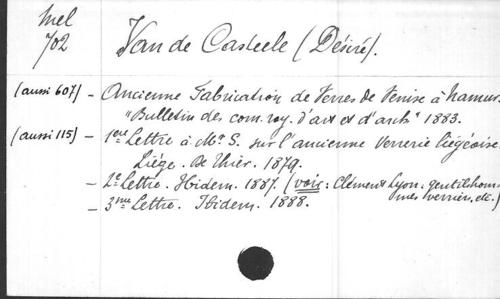 Mel
702
Van de Casteele (Désiré).
(aussi 607) – Ancienne Fabrication de Verres de Venise à Namur.
"Bulletin des com. roy. d'art et d'arch" 1883.
(aussi 115) – 1ere Lettre à Mr S. sur l'ancienne verrerie liégeoise.
Liége. De Thier. 1879.
– 2e Lettre. Ibidem. 1887. (voir: Clément Lyon: gentilshom-
mes verriers, etc.)
– 3me Lettre. Ibidem. 1888.